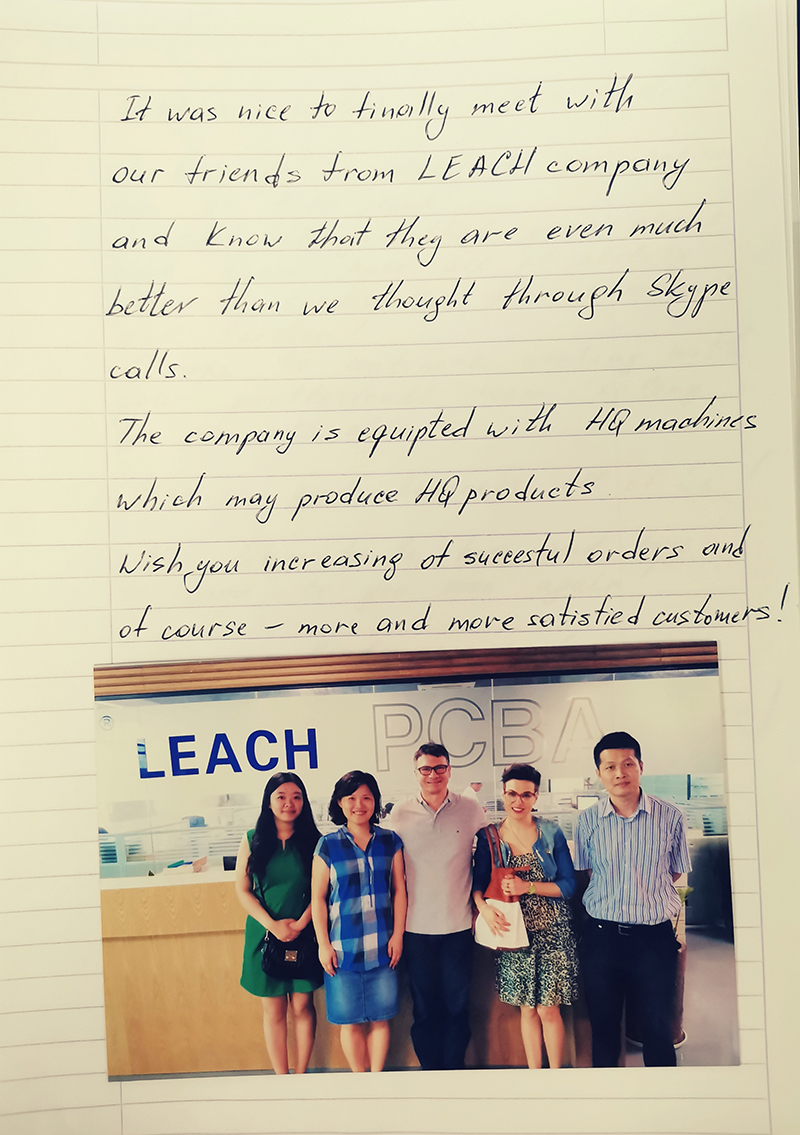 It was nice to finally meet with
our friends from LEACH company
and know that they are even much
better than we thought through Skype
calls.
The company is equipted with HQ machines
which may produce HQ products.
Wish you increasing of succesful orders and
of course – more and more satisfied customers!
LEACH PCBA